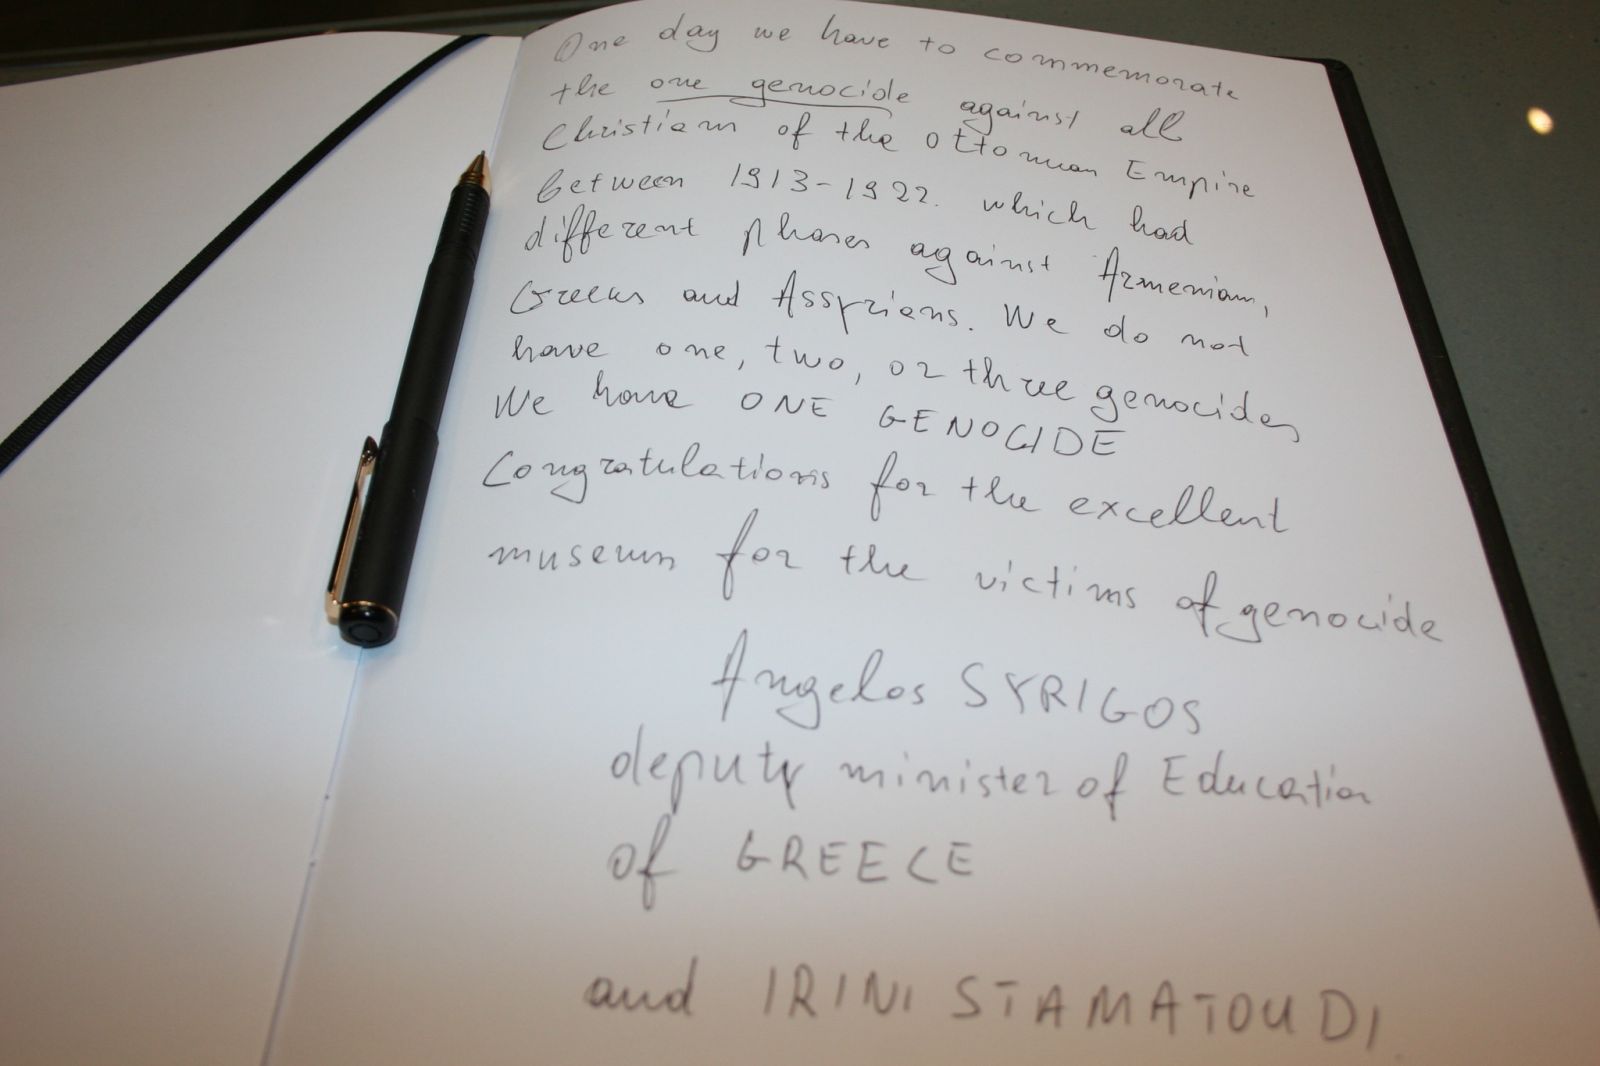 One day we have to commemorate
the one genocide against all
Christians of the Ottoman Empire
between 1913-1922. which had
different phases against Armenians,
Greeks and Assyrians. We do not
have one, two, or three genocides
We have ONE GENOCIDE
Congratulations for the excellent
museum for the victims of genocide
Angelos SYRIGOS
deputy minister of Education
of GREECE
and IRINI STAMATOUDI